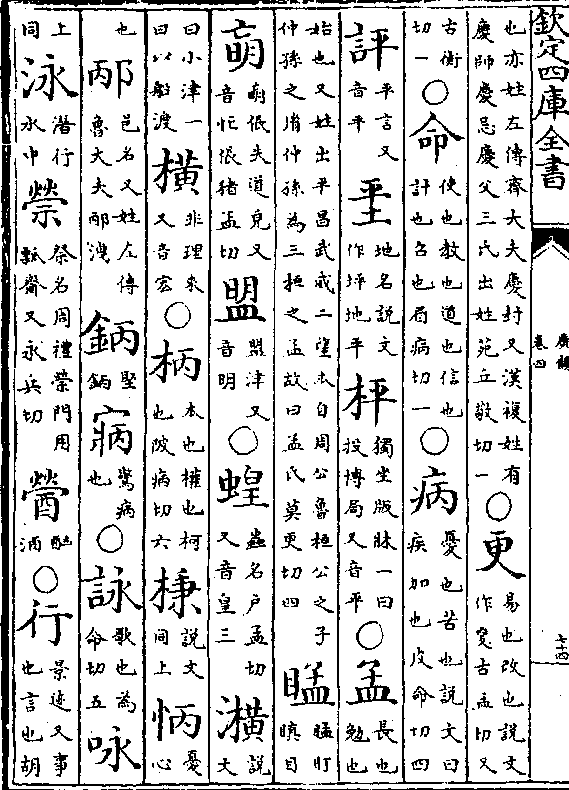 欽定四庫全書
廣韻
卷四
七十四
也亦姓左傳齊大夫慶封又漢複姓有慶師慶忌慶父三氏出姓苑丘敬切一○更易也改也說文作㪅古孟切又
古衡切一○命使也教也道也信也計也召也眉病切一○病憂也苦也說文曰疾加也皮命切四
評平言又音平 地名說文作坪地平枰獨坐版牀一曰投博局又音平○孟長也勉也
始也又姓出平昌武威二望本自周公魯桓公之子仲孫之𦙍仲孫為三桓之孟故曰孟氏莫更切四䁅䁅盯瞋目
倀失道皃又音忙倀猪孟切盟盟津又音明○蝗蟲名户孟切又音皇三 說文
曰小津一曰以船渡橫非理來又音宏○柄本也權也柯也陂病切六棅說文同上怲憂心
也邴邑名又姓左傳魯大夫邴洩鈵堅鈵寎驚病也○詠歌也為命切五咏
上同泳潛行水中禜祭名周禮禜門用瓢齎又永兵切醟酗酒○行景迹又事也言也胡